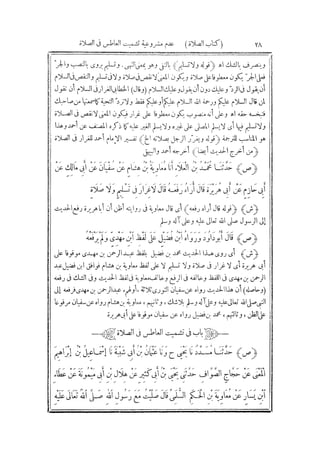 ٢٨ (كتاب الصلاة) عدم مشروعية تشميت العاطس فى الصلاة
وينصرف بالشك اه ﴿قوله ولا تسليم﴾ بالتى وهو بمعنى النهى. وتسليم يروى بالنصب والجرّ
فعلى الجرّ يكون معطوفا على صلاة ويكون المعنى لا نقص فى صلاة ولا فى تسليم والنقص فى السلام
أن يقول فى الردّ وعليك دون أن يقول وعليك السلام (وقال) الخطابى الغرار فى السلام أن تقول
لمن قال السلام عليكم ورحمة الله السلام عليكم أو عليكم فقط ولا تردّ التحية كما سمعتها من صاحبك
فتبخسه حقه اه وعلى أنه منصوب يكون معطوفا على غرار فيكون المعنى لا نقص فى الصلاة
ولا تسليم فيها أى لا يسلم المصلى على غيره ولا يسلم الغير عليه كما ذكره المصنف عن أحمد وهذا
هو المناسب للترجمة ﴿قوله ويغرّر الرجل بصلاته الخ﴾ تفسير الإمام أحمد للغرار فى الصلاة
﴿من أخرج الحديث أيضا﴾ أخرجه أحمد والبيهقى
﴿ص﴾ حَدَّثَنَا مُحَمَّدُ بْنُ الْعَلَاءِ أَنَا مُعَاوِيَةُ بْنُ هِشَامٍ عَنْ سُفْيَانَ عَنْ أَبِى مَالِكٍ عَنْ
أَبِى حَازِمٍ عَنْ أَبِى هُرَيْرَةَ قَالَ أُرَاهُ رَفَعَهُ قَالَ لَا غِرَارَ فِى تَسْلِيمٍ وَلَا صَلَاةٍ
﴿ش﴾ ﴿قوله قال أراه رفعه﴾ أى قال معاوية فى روايته أظن أن أبا هريرة رفع الحديث
إلى الرسول صلى الله تعالى عليه وعلى آله وسلم
﴿ص﴾ قَالَ أَبُو دَاوُدَ وَرَوَاهُ ابْنُ فُضَيْلٍ عَلَى لَفْظِ ابْنِ مَهْدِىٍّ وَلَمْ يَرْفَعْهُ
﴿ش﴾ أى روى هذا الحديث محمد بن فضيل بلفظ عبد الرحمن بن مهدى موقوفا على
أبى هريرة أى لا غرار فى صلاة ولا تسليم لا على لفظ معاوية بن هشام فوافق ابن فضيل عبد
الرحمن بن مهدى فى اللفظ وخالفه فى الرفع وخالف معاوية فى لفظ الحديث وفى الشك فى رفعه
﴿وحاصله﴾ أن هذا الحديث رواه عن سفيان الثورى ثلاثة، أولهم عبد الرحمن بن مهدى فرفعه إلى
النبى صلى الله تعالى عليه وعلى آله وسلم بلا شك، وثانيهم، معاوية بن هشام رواه عن سفيان مرفوعا
على الظن، وثالثهم، محمد بن فضيل رواه عن سفيان موقوفا على أبى هريرة
باب فى تشميت العاطس فى الصلاة
﴿ص﴾ حَدَّثَنَا مُسَدَّدٌ نَا يَحْيَى ح وَنَا عُثْمَانُ بْنُ أَبِى شَيْبَةَ نَا إِسْمَاعِيلُ بْنُ إِبْرَاهِيمَ
الْمَعْنَى عَنْ حَجَّاجٍ الصَّوَّافِ حَدَّثَنِى يَحْيَى بْنُ أَبِى كَثِيرٍ عَنْ هِلَالِ بْنِ أَبِى مَيْمُونَةَ عَنْ عَطَاءِ
ابْنِ يَسَارٍ عَنْ مُعَاوِيَةَ بْنِ الْحَكَمِ السُّلَمِىِّ قَالَ صَلَّيْتُ مَعَ رَسُولِ اللهِ صَلَّى اللهُ تَعَالَى عَلَيْهِ